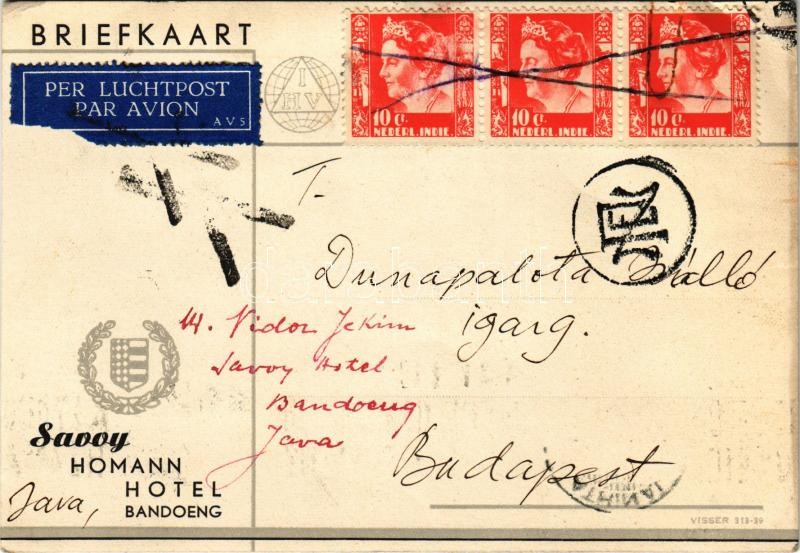 BRIEFKAART
PER LUCHTPOST
PAR AVION
AV5
I
HV
10 CT. 10 CT. 10 CT.
NEDERL. INDIE NEDERL. INDIE NEDERL. INDIE
T.
Dunapalota Szálló
igazg.
Vidor
Savoy Hotel
Bandoeng
Java
Budapest
Savoy
HOMANN
HOTEL
BANDOENG
Java,
VISSER 313-39